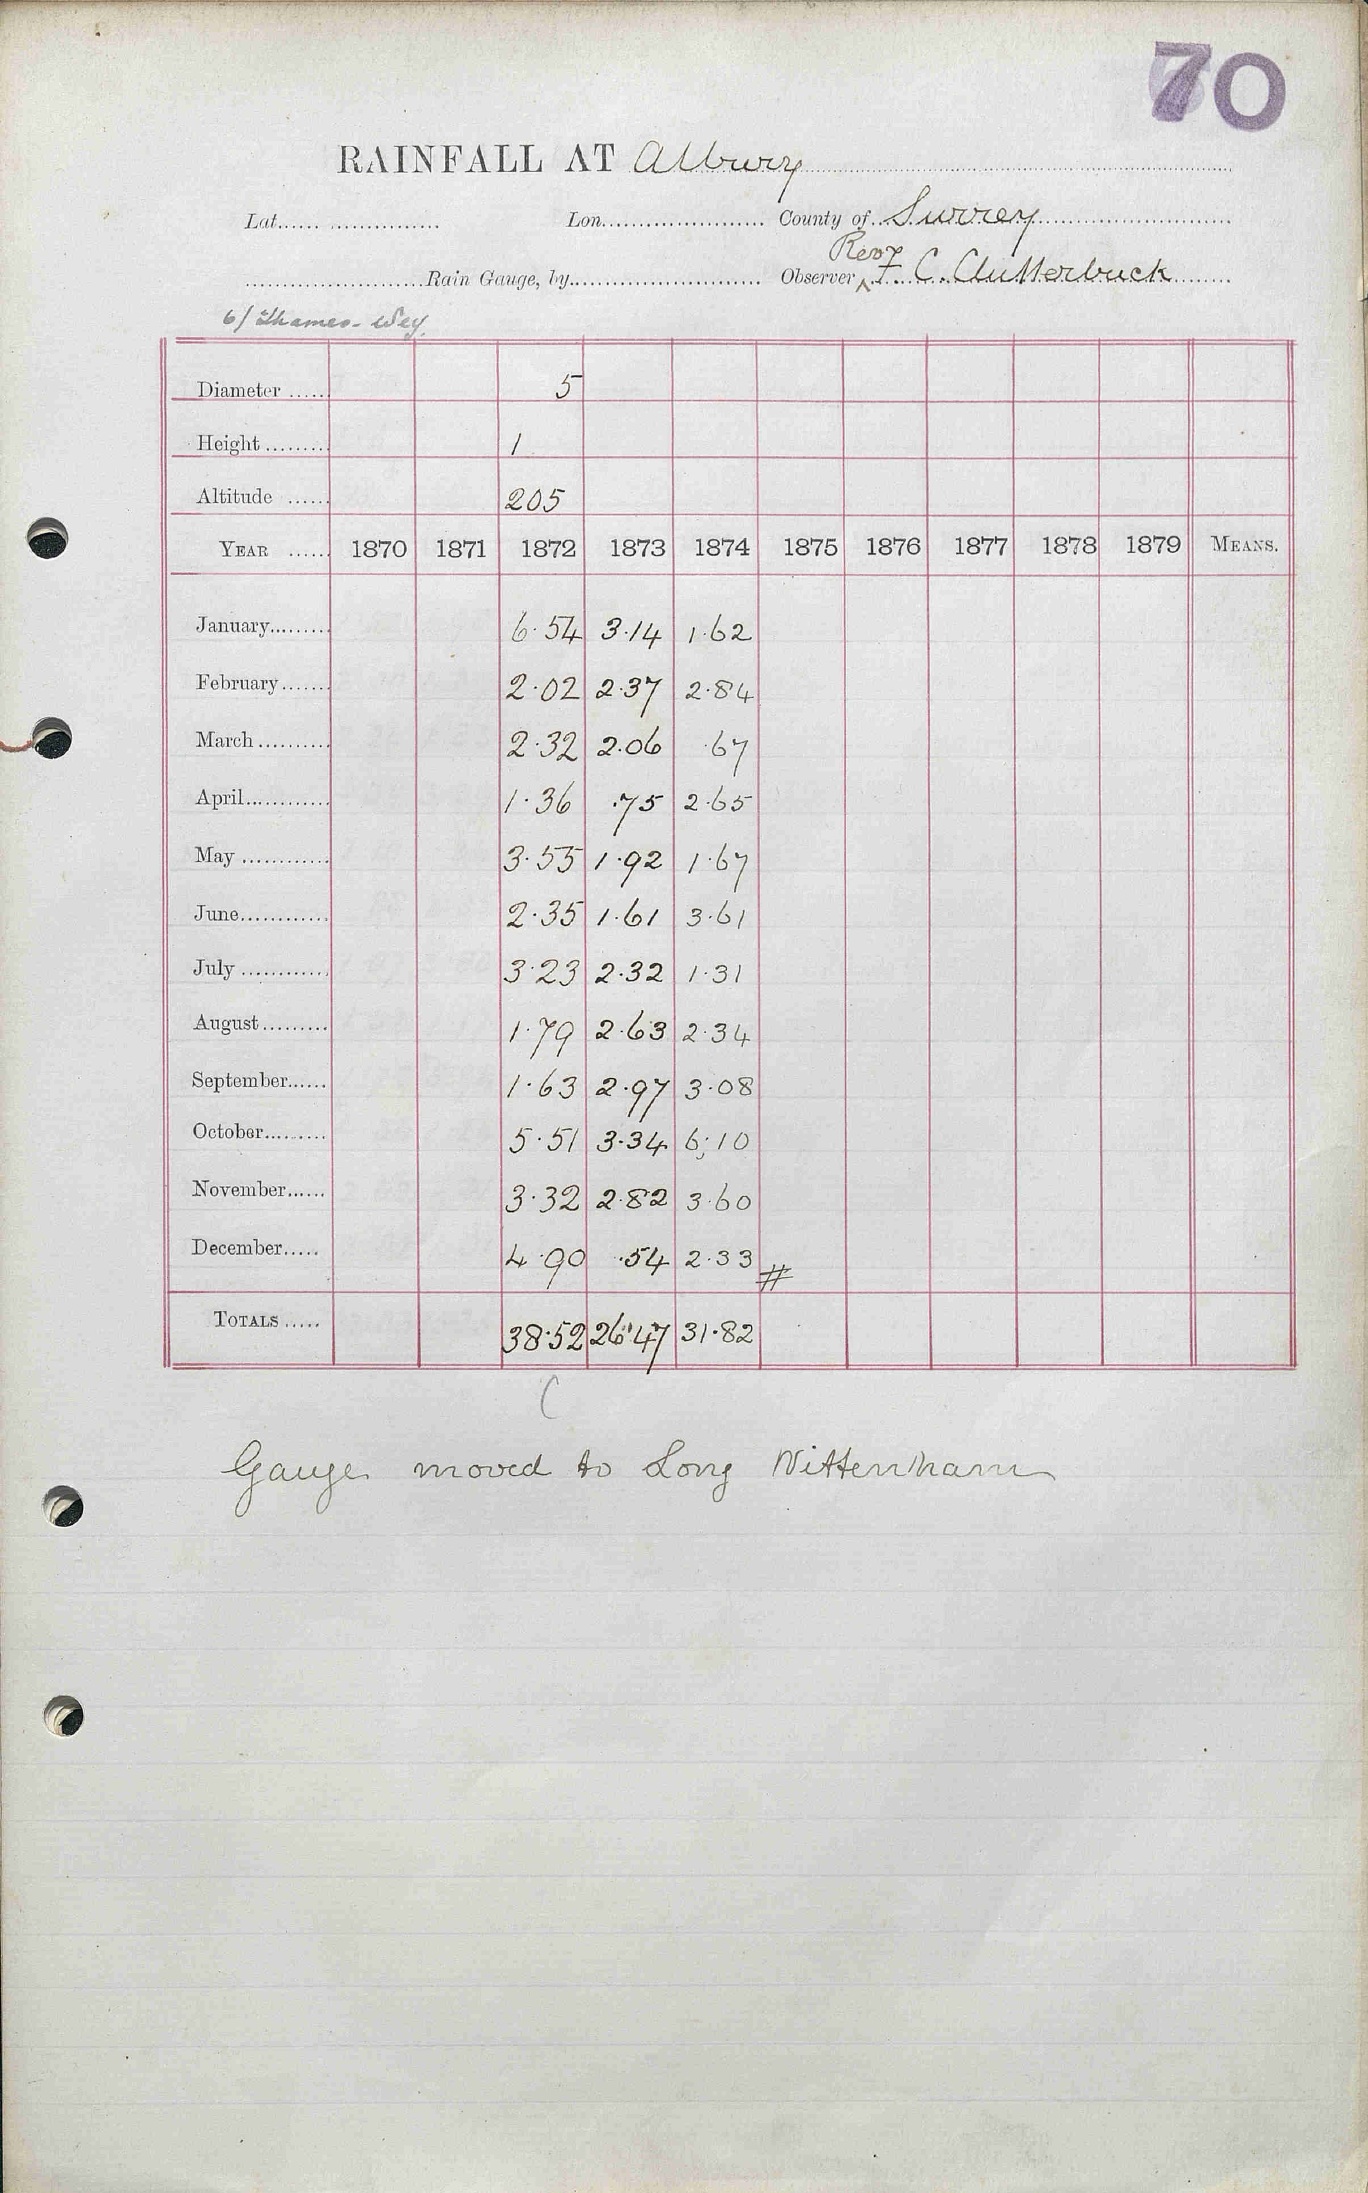 70
RAINFALL AT Albury
Lat. Lon. County of Surrey
Rev^d
Rain Gauge, by Observer ^ F. C. Clutterbuck
6/ Thames - Wey.
Diameter 5
Height 1
Altitude 205
YEAR 1870 1871 1872 1873 1874 1875 1876 1877 1878 1879 MEANS.
January 6.54 3.14 1.62
February 2.02 2.37 2.84
March 2.32 2.06 .67
April 1.36 .75 2.65
May 3.55 1.92 1.67
June 2.35 1.61 3.61
July 3.23 2.32 1.31
August 1.79 2.63 2.34
September 1.63 2.97 3.08
October 5.51 3.34 6.10
November 3.32 2.82 3.60
December 4.90 .54 2.33 #
TOTALS 38.52 26.47 31.82
C
Gauge moved to Long Wittenham